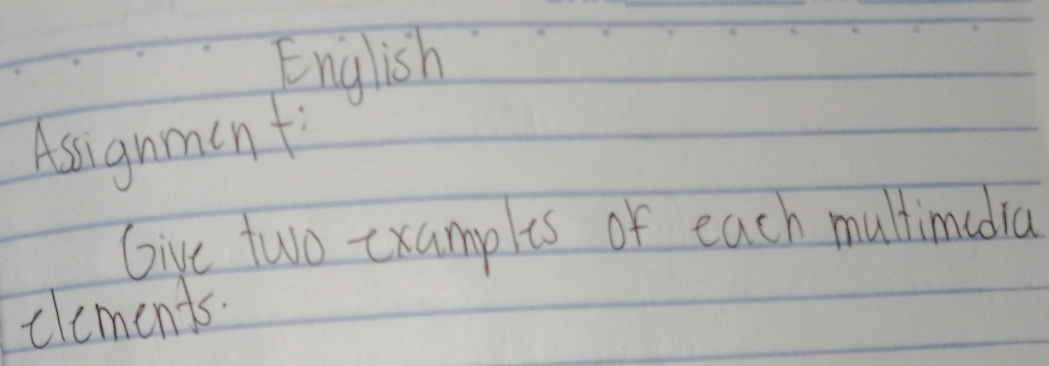 English
Assignment:
Give two examples of each multimedia
elements.